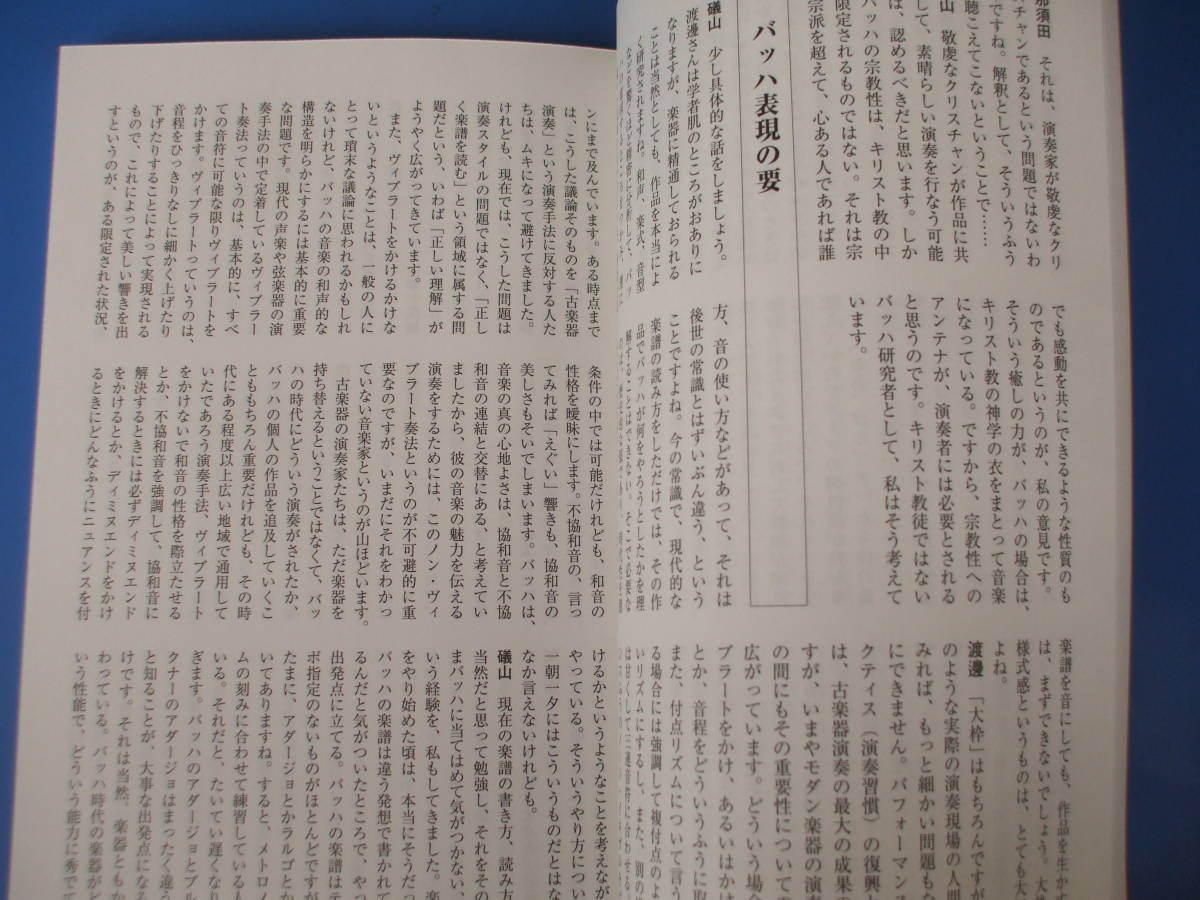 那須田　それは、演奏家が敬虔なクリ
スチャンであるという問題ではないわ
ですね。解釈として、そういうふう
聴こえてこないということで……
山　敬虔なクリスチャンが作品に共
して、素晴らしい演奏を行なう可能
は、認めるべきだと思います。しか
バッハの宗教性は、キリスト教の中
限定されるものではない。それは宗
宗派を超えて、心ある人であれば誰
でも感動を共にできるような性質のも
のであるというのが、私の意見です。
そういう癒しの力が、バッハの場合は、
キリスト教の神学の衣をまとって音楽
になっている。ですから、宗教性への
アンテナが、演奏者には必要とされる
と思うのです。キリスト教徒ではない
バッハ研究者として、私はそう考えて
います。
バッハ表現の要
礒山　少し具体的な話をしましょう。
渡邊さんは学者肌のところがおありに
なりますが、楽器に精通しておられる
ことは当然としても、作品を本当によ
く研究されますね。和声、楽式、音型
方、音の使い方などがあって、それは
後世の常識とはずいぶん違う、という
ことですよね。今の常識で、現代的な
楽譜の読み方をしただけでは、その作
品でバッハが何をやろうとしたかを理
解することはできない。そこで必要な
楽譜を音にしても、作品を生かす
は、まずできないでしょう。大
様式感というものは、とても大
よね。
渡邊　「大枠」はもちろんですが
みれば、もっと細かい問題もな
にできません。パフォーマンス
クティス（演奏習慣）の復興と
のような実際の演奏現場の人間
は、古楽器演奏の最大の成果の
すが、いまやモダン楽器の演奏
の間にもその重要性についての
広がっています。どういう場合
ブラートをかけ、あるいはかけ
とか、音程をどういうふうに取
また、付点リズムについて言う
る場合には強調して複付点のよ
いリズムにするし、また、別の
は甘くして三連音符に合わせる
ンにまで及んでいます。ある時点まで
は、こうした議論そのものを「古楽器
演奏」という演奏手法に反対する人た
ちは、ムキになって避けてきました。
けれども、現在では、こうした問題は
演奏スタイルの問題ではなく、「正し
く楽譜を読む」という領域に属する問
題だという、いわば「正しい理解」が
ようやく広がってきています。
また、ヴィブラートをかけるかけな
いというようなことは、一般の人に
とって瑣末な議論に思われるかもしれ
ないけれど、バッハの音楽の和声的な
構造を明らかにするには基本的に重要
な問題です。現代の声楽や弦楽器の演
奏手法の中で定着しているヴィブラー
ト奏法っていうのは、基本的に、すべ
ての音符に可能な限りヴィブラートを
かけます。ヴィブラートっていうのは、
音程をひっきりなしに細かく上げたり
下げたりすることによって実現される
もので、これによって美しい響きを出
すというのが、ある限定された状況、
条件の中では可能だけれども、和音の
性格を曖昧にします。不協和音の、言っ
てみれば「えぐい」響きも、協和音の
美しさもそいでしまいます。バッハは、
音楽の真の心地よさは、協和音と不協
和音の連結と交替にある、と考えてい
ましたから、彼の音楽の魅力を伝える
演奏をするためには、このノン・ヴィ
ブラート奏法というのが不可避的に重
要なのですが、いまだにそれをわかっ
ていない音楽家というのが山ほどいます。
古楽器の演奏家たちは、ただ楽器を
持ち替えるということではなくて、バッ
ハの時代にどういう演奏がされたか、
バッハの個人の作品を追及していくこ
とももちろん重要だけれども、その時
代にある程度以上広い地域で通用して
いたであろう演奏手法、ヴィブラート
をかけないで和音の性格を際立たせる
とか、不協和音を強調して、協和音に
解決するときには必ずディミヌエンド
をかけるとか、ディミヌエンドをかけ
るときにどんなふうにニュアンスを付
けるかというようなことを考えなが
やっている。そういうやり方につい
一朝一夕にはこういうものだとはな
なか言えないけれども。
礒山　現在の楽譜の書き方、読み方
当然だと思って勉強し、それをその
まバッハに当てはめて気がつかない、
いう経験を、私もしてきました。楽
をやり始めた頃は、本当にそうだっ
バッハの楽譜は違う発想で書かれて
るんだと気がついたところで、やっ
出発点に立てる。バッハの楽譜はテ
ポ指定のないものがほとんどですが
たまに、アダージョとかラルゴとか
いてありますね。すると、メトロノ
ムの刻みに合わせて練習している人
いる。それだと、たいてい遅くなり
ぎます。バッハのアダージョとブル
クナーのアダージョはまったく違う
と知ることが、大事な出発点になる
けです。それは当然、楽器ともか
わっている。バッハ時代の楽器がど
いう性能で、どういう能力に秀で